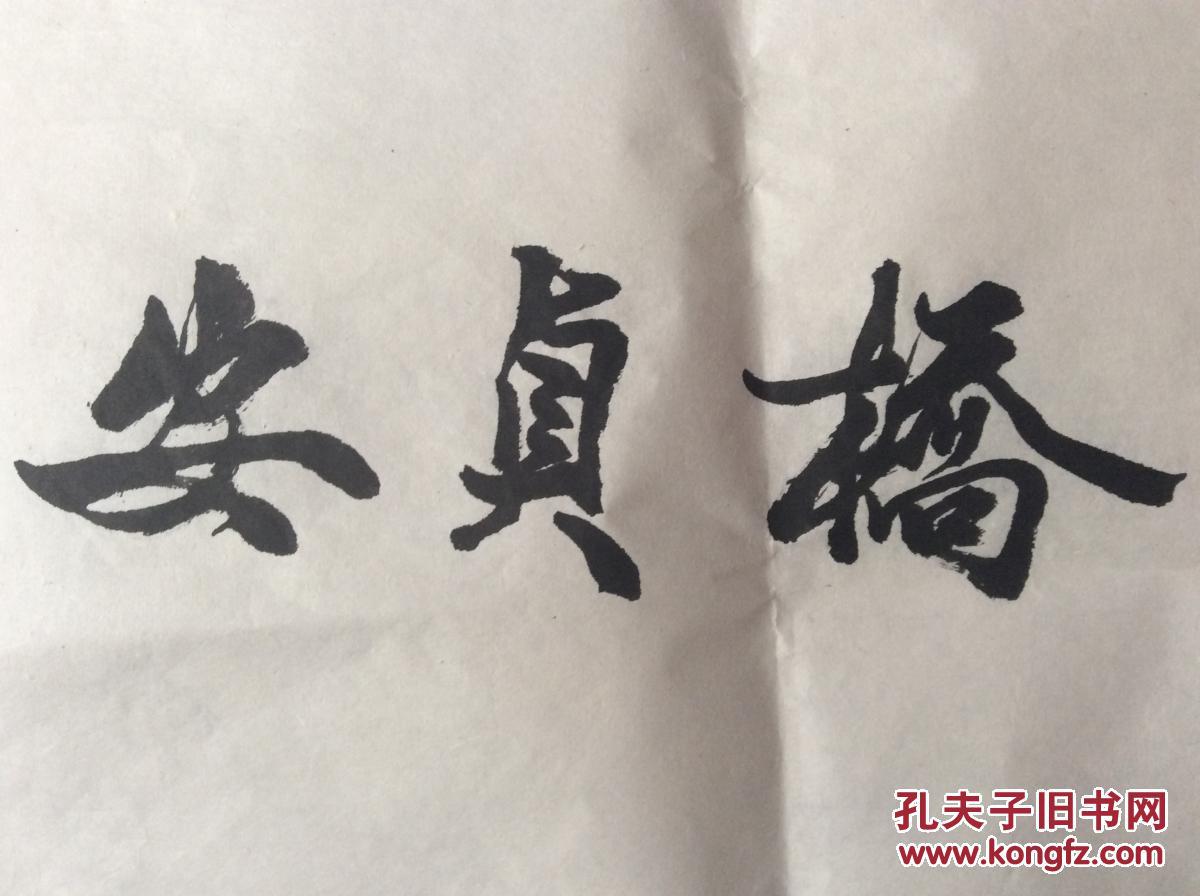 安貞橋
孔夫子旧书网
www.kongfz.com